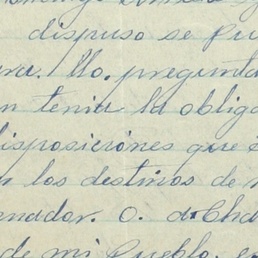 dispuso se Pu
ra. Yo, pregunta
n tenia la obliga
disposiciones que e
n los destinos de m
enador. O. de Cha
de mi Pueblo, en